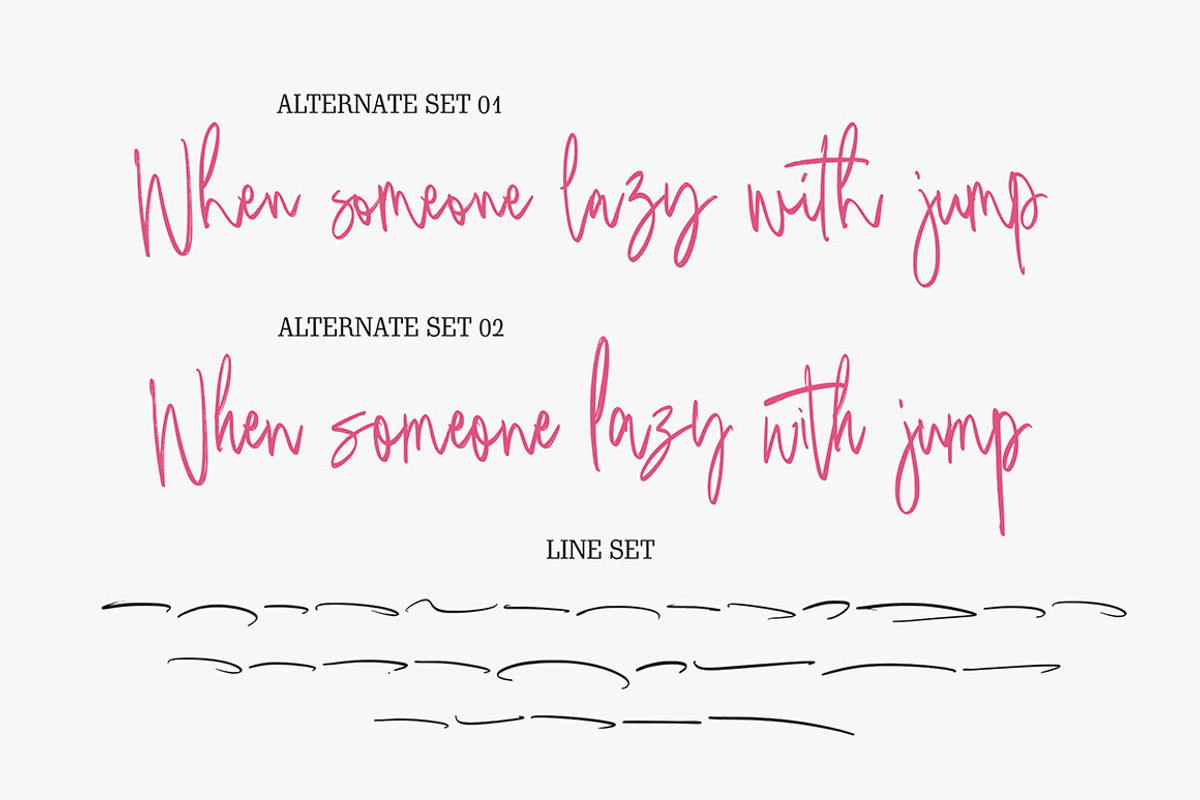 ALTERNATE SET 01
When someone lazy with jump
ALTERNATE SET 02
When someone lazy with jump
LINE SET